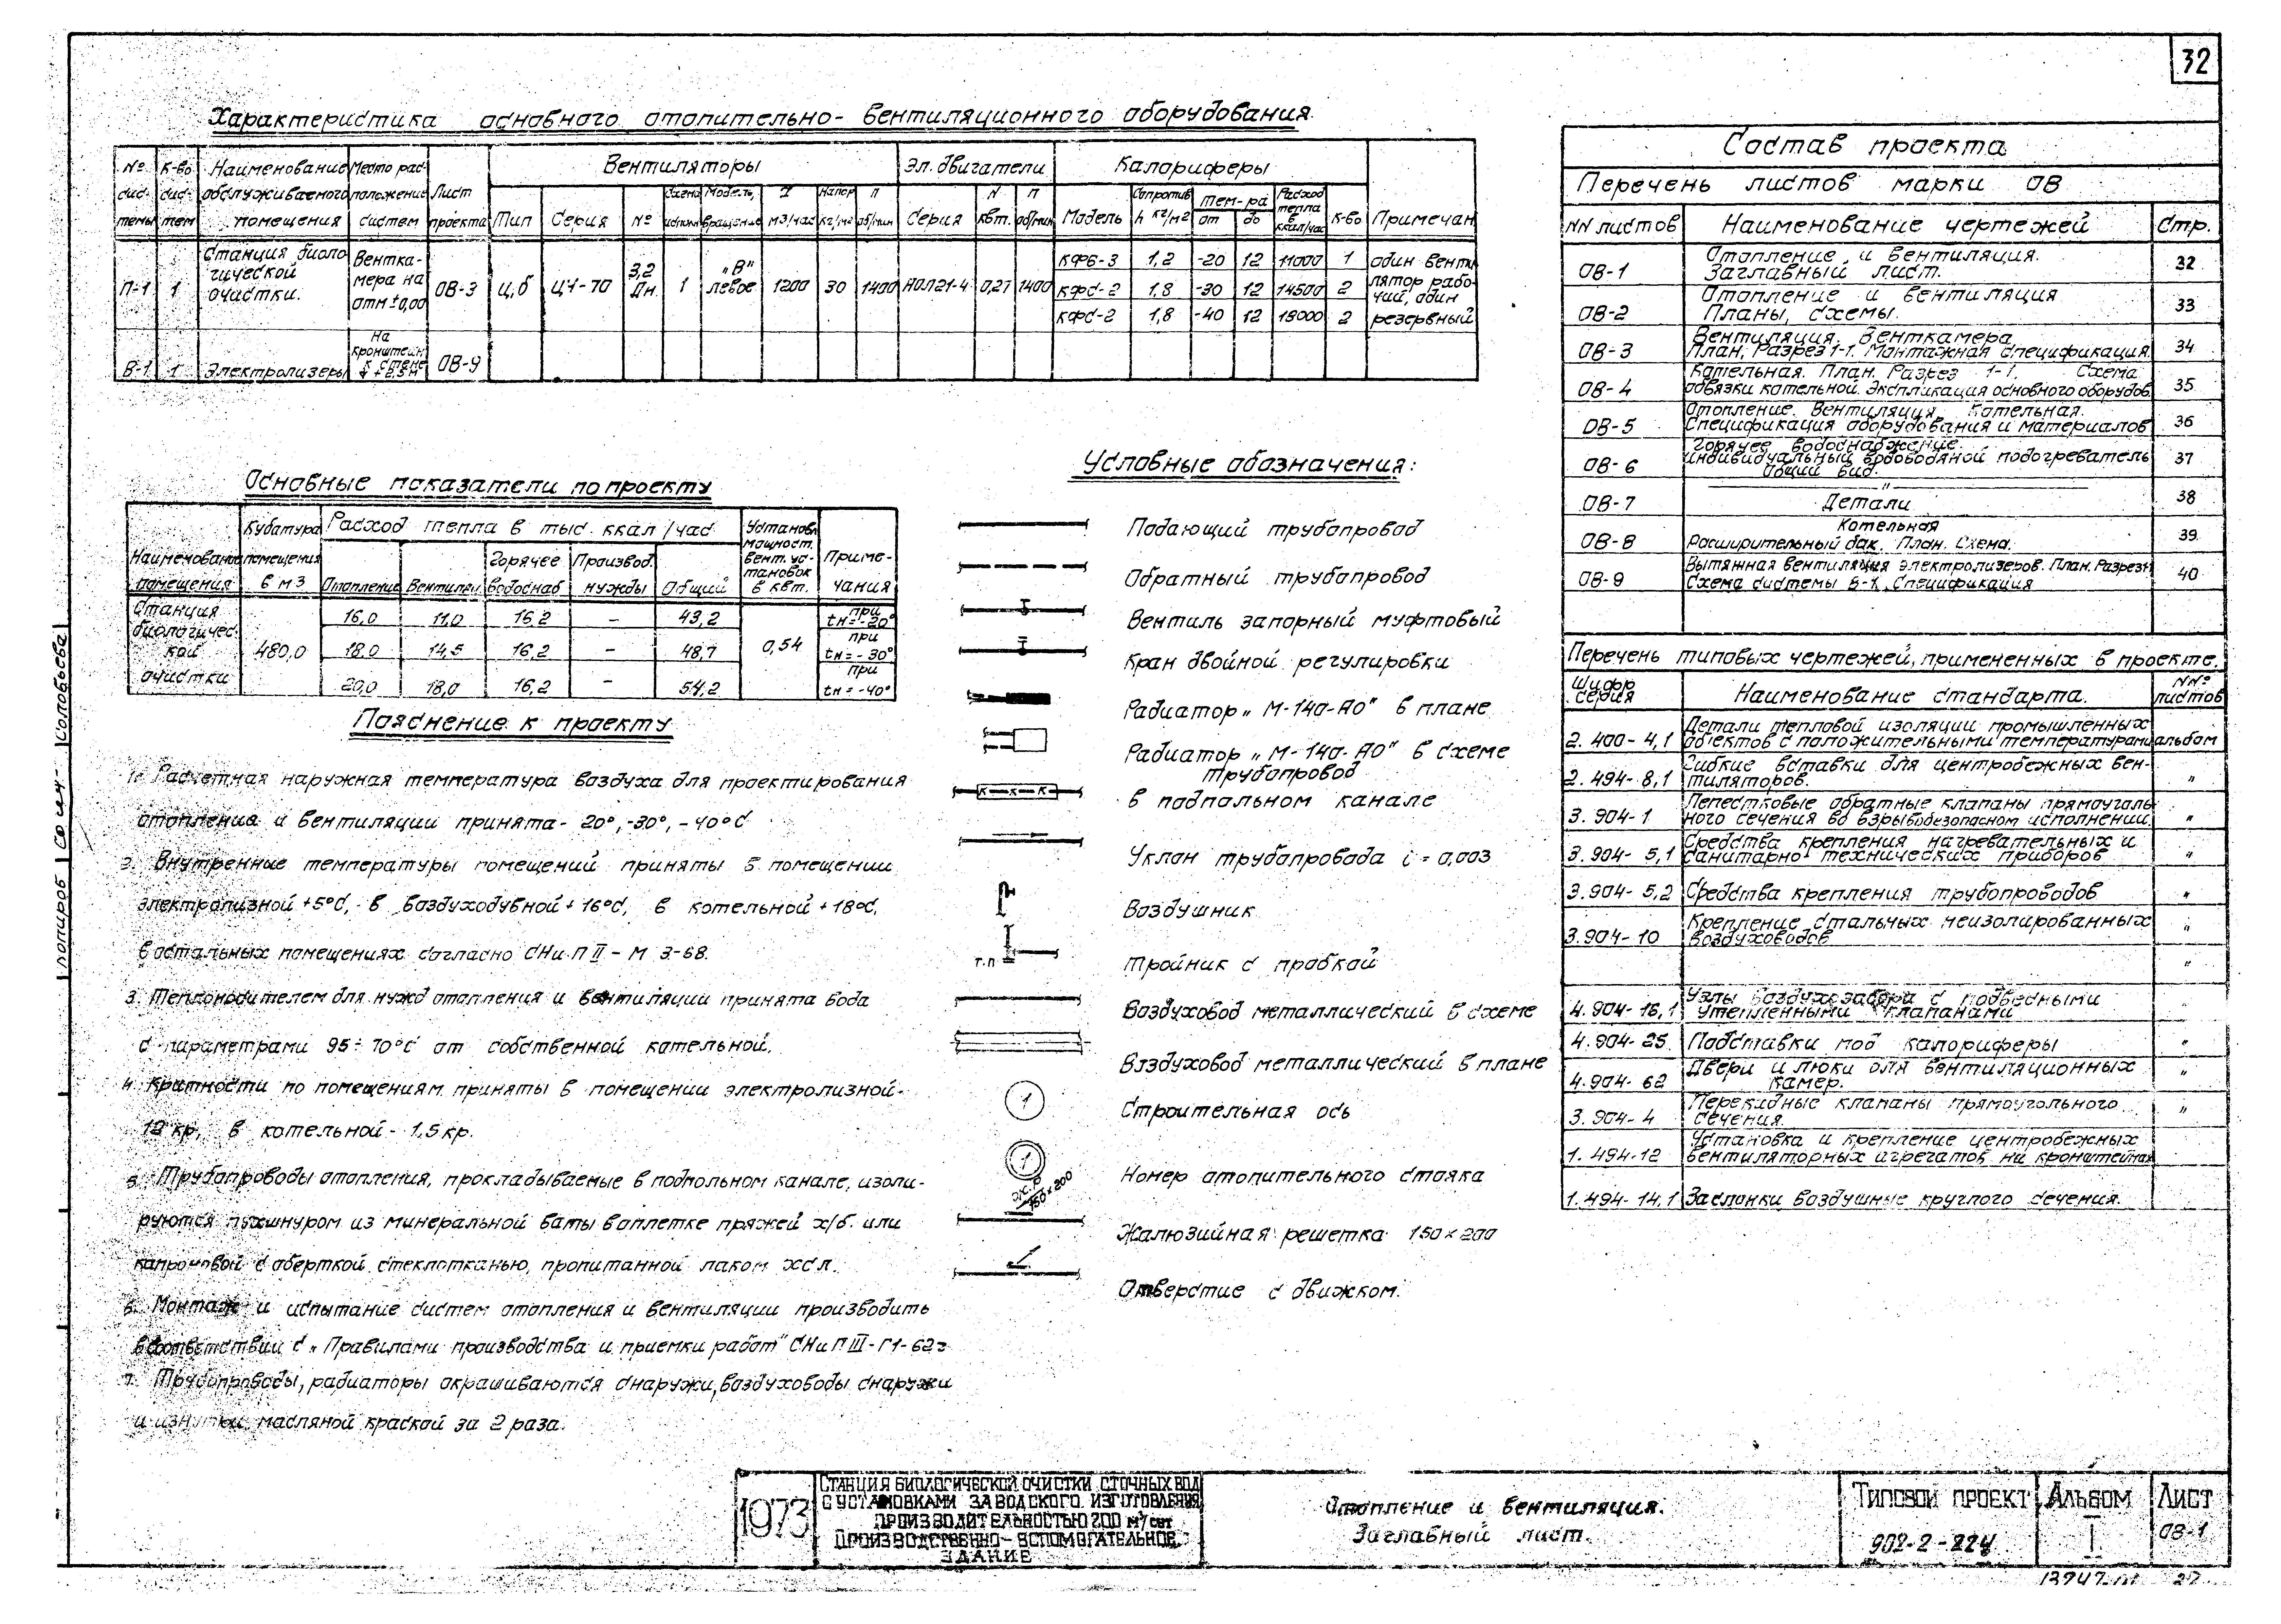 32
Характеристика основного отопительно-вентиляционного оборудования
№ систе­мы
К-во систем
Наименование обслуживаемого помещения
Место расположение систем
Лист проекта
Вентиляторы
Эл. двигатели
Калориферы
Тип
Серия
№
Схема исполн
Модель, вращение
L м3/час
Напор кг/м2
п об/мин
Серия
N квт.
п об/мин
Модель
Сопротив h кг/м2
Тем-ра
от
до
Расход тепла в ккал/час
К-во
Примечан
П-1 1 Станция биологической очистки. Венткамера на отм ±0,00 ОВ-3 Ц,б Ц4-70 3,2 Дн. 1 „В" левое 1200 30 1400 АОЛ21-4 0,27 1400
КФБ-3 1,2 -20 12 11000 1
КФС-2 1,8 -30 12 14500 2
КФС-2 1,8 -40 12 18000 2
один вентилятор рабочий, один резервный
В-1 1 Электролизеры На кронштейн к стене + 2,5 м ОВ-9
Основные показатели по проекту
Наименование помещения
Кубатура помещения в м3
Расход тепла в тыс. ккал/час
Отопление
Вентиляц
Горячее водоснаб
Производ. нужды
Общий
Установ. мощност. вент. установок в квт.
Примечания
Станция биологической очистки 480,0
16,0 11,0 16,2 – 43,2 при tн=-20°
18,0 14,5 16,2 – 48,7 0,54 при tн=-30°
20,0 18,0 16,2 – 54,2 при tн=-40°
Пояснение к проекту
1. Расчетная наружная температура воздуха для проектирования
отопления и вентиляции принята - 20°, -30°, -40°С
2. Внутренние температуры помещений приняты в помещении
электролизной +5°С, в воздуходувной + 16°С, в котельной + 18°С,
в остальных помещениях согласно СНиП II – М 3-68.
3. Теплоносителем для нужд отопления и вентиляции принята вода
с параметрами 95÷70°С от собственной котельной.
4. Кратности по помещениям приняты в помещении электролизной-
12 кр, в котельной - 1,5 кр.
5. Трубопроводы отопления, прокладываемые в подпольном канале, изоли-
руются пухшнуром из минеральной ваты в оплетке пряжей х/б. или
капроновой с оберткой стеклотканью, пропитанной лаком ХСЛ.
6. Монтаж и испытание систем отопления и вентиляции производить
в соответствии с „Правилами производства и приемки работ" СНиП III-Г1-62г
7. Трубопроводы, радиаторы окрашиваются снаружи, воздуховоды снаружи
и изнутри масляной краской за 2 раза.
Условные обозначения:
Подающий трубопровод
Обратный трубопровод
Вентиль запорный муфтовый
Кран двойной регулировки
Радиатор „М-140-АО" в плане
Радиатор „М-140-АО" в схеме
трубопровод
К К К
в подпольном канале
Уклон трубопровода i = 0,003
Воздушник
т.п
Тройник с пробкой
Воздуховод металлический в схеме
Воздуховод металлический в плане
1
Строительная ось
1
Номер отопительного стояка
ж.р 150×200
Жалюзийная решетка 150×200
Отверстие с движком.
Состав проекта
Перечень листов марки ОВ
NN листов Наименование чертежей Стр.
ОВ-1 Отопление и вентиляция. Заглавный лист. 32
ОВ-2 Отопление и вентиляция Планы, схемы. 33
ОВ-3 Вентиляция. Венткамера План, Разрез 1-1. Монтажная спецификация 34
ОВ-4 Котельная. План. Разрез 1-1. Схема обвязки котельной. Экспликация основного оборудов. 35
ОВ-5 Отопление. Вентиляция. Котельная. Спецификация оборудования и материалов 36
ОВ-6 Горячее водоснабжение. Индивидуальный водоводяной подогреватель Общий вид. 37
ОВ-7 — " — Детали 38
ОВ-8 Котельная Расширительный бак. План. Схема. 39
ОВ-9 Вытяжная вентиляция электролизеров. План. Разрез 1 Схема системы В-1. Спецификация 40
Перечень типовых чертежей, примененных в проекте.
Шифр серия Наименование стандарта. NN° листов
2.400-4,1 Детали тепловой изоляции промышленных объектов с положительными температурами альбом
2.494-8,1 Гибкие вставки для центробежных вентиляторов. "
3.904-1 Лепестковые обратные клапаны прямоугольного сечения во взрывобезопасном исполнении "
3.904-5,1 Средства крепления нагревательных и санитарно-технических приборов "
3.904-5,2 Средства крепления трубопроводов "
3.904-10 Крепление стальных неизолированных воздуховодов "
"
4.904-16,1 Узлы воздухозабора с подвесными утепленными клапанами "
4.904-25 Подставки под калориферы "
4.904-62 Двери и люки для вентиляционных камер. "
3.904-4 Перекидные клапаны прямоугольного сечения. "
1.494-12 Установка и крепление центробежных вентиляторных агрегатов на кронштейнах
1.494-14,1 Заслонки воздушные круглого сечения.
копировал Соловьева
1973
Станция биологической очистки сточных вод
с установками заводского изготовления
производительностью 200 м³/сут
Производственно-вспомогательное
здание
Отопление и вентиляция.
Заглавный лист.
Типовой проект
902-2-224
Альбом
I
Лист
ОВ-1